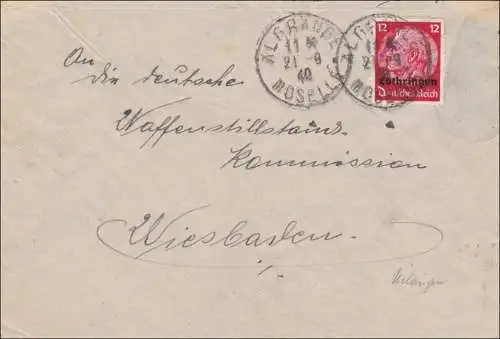 ALGRANGE
11 *
21 -9
40
MOSELLE
12 12
Lothringen
Deutsches Reich
An
die deutsche
Waffenstillstands
Kommission
Wiesbaden.